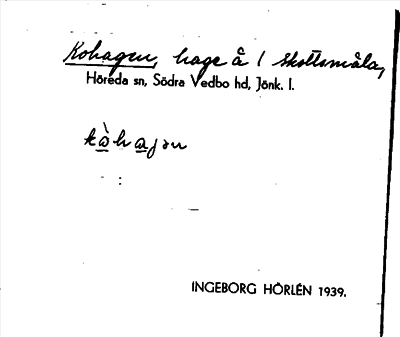 Kohagen, hage å 1 Skottsmåla,
Höreda sn, Södra Vedbo hd, Jönk. l.
kòhagən
INGEBORG HÖRLÉN 1939.